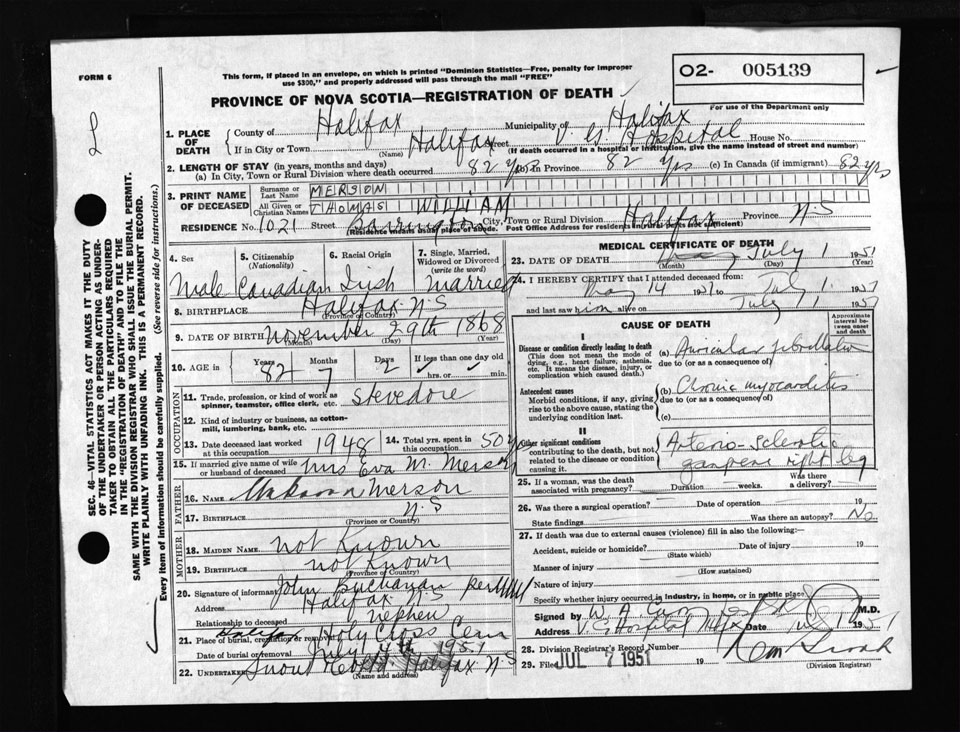 FORM 6
This form, if placed in an envelope, on which is printed "Dominion Statistics—Free, penalty for improper
use $300," and properly addressed will pass through the mail "FREE"
02- 005139
For use of the Department only
PROVINCE OF NOVA SCOTIA—REGISTRATION OF DEATH
L
1. PLACE OF DEATH
County of Halifax Municipality of Halifax
If in City or Town Halifax Street V. G. Hospital House No.
(Name) (If death occurred in a hospital or institution, give the name instead of street and number)
2. LENGTH OF STAY (in years, months and days)
(a) In City, Town or Rural Division where death occurred 82 yrs (b) In Province 82 yrs (c) In Canada (if immigrant) 82 yrs
3. PRINT NAME OF DECEASED
Surname or Last Name MERSON
All Given or Christian Names THOMAS WILLIAM
RESIDENCE No. 1021 Street Barrington City, Town or Rural Division Halifax Province N.S
(Residence means usual place of abode. Post Office Address for residents in rural parts not sufficient)
4. Sex Male
5. Citizenship (Nationality) Canadian
6. Racial Origin Irish
7. Single, Married, Widowed or Divorced (write the word) married
8. BIRTHPLACE Halifax N.S
(Province or Country)
9. DATE OF BIRTH November 29th 1868
(Month) (Day) (Year)
10. AGE in Years 82 Months 7 Days 2 If less than one day old hrs. or min.
OCCUPATION
11. Trade, profession, or kind of work as spinner, teamster, office clerk, etc. Stevedore
12. Kind of industry or business, as cotton-mill, lumbering, bank, etc.
13. Date deceased last worked at this occupation 1948
14. Total yrs. spent in this occupation 50 yrs
15. If married give name of wife or husband of deceased Mrs Eva M. Merson
FATHER
16. NAME Merson
17. BIRTHPLACE N.S
(Province or Country)
MOTHER
18. MAIDEN NAME not Known
19. BIRTHPLACE not Known
(Province or Country)
20. Signature of informant John Buchanan per
Address Halifax N.S
Relationship to deceased nephew
21. Place of burial, cremation or removal Halifax Holy Cross Cem
Date of burial or removal July 4th 1951
22. UNDERTAKER Snow & Co Ltd. Halifax N S
(Name and address)
MEDICAL CERTIFICATE OF DEATH
23. DATE OF DEATH July 1 1951
(Month) (Day) (Year)
24. I HEREBY CERTIFY that I attended deceased from
May 14 1951 to July 1. 1951
and last saw him alive on July 1 1951
CAUSE OF DEATH
Approximate interval between onset and death
I
Disease or condition directly leading to death
(This does not mean the mode of dying, e.g., heart failure, asthenia, etc. It means the disease, injury, or complication which caused death.)
(a) Auricular fibrillation
due to (or as a consequence of)
Antecedent causes
Morbid conditions, if any, giving rise to the above cause, stating the underlying condition last.
(b) Chronic myocarditis
due to (or as a consequence of)
(c)
II
Other significant conditions
contributing to the death, but not related to the disease or condition causing it.
Arterio-sclerotic
gangrene right leg
25. If a woman, was the death associated with pregnancy? Duration weeks. Was there a delivery?
26. Was there a surgical operation? Date of operation 19
State findings Was there an autopsy? No
27. If death was due to external causes (violence) fill in also the following:—
Accident, suicide or homicide? Date of injury 19
(State which)
Manner of injury
(How sustained)
Nature of injury
Specify whether injury occurred in industry, in home, or in public place
Signed by W. A. M.D.
Address V. G. Hospital Hfx Date July 1951
28. Division Registrar's Record Number
29. Filed JUL 7 1951 19
(Division Registrar)
SEC. 46—VITAL STATISTICS ACT MAKES IT THE DUTY
OF THE UNDERTAKER OR PERSON ACTING AS UNDER-
TAKER TO OBTAIN ALL THE PARTICULARS REQUIRED
IN THE "REGISTRATION OF DEATH" AND TO FILE THE
SAME WITH THE DIVISION REGISTRAR WHO SHALL ISSUE THE BURIAL PERMIT.
WRITE PLAINLY WITH UNFADING INK. THIS IS A PERMANENT RECORD.
Every item of information should be carefully supplied. (See reverse side for instructions.)